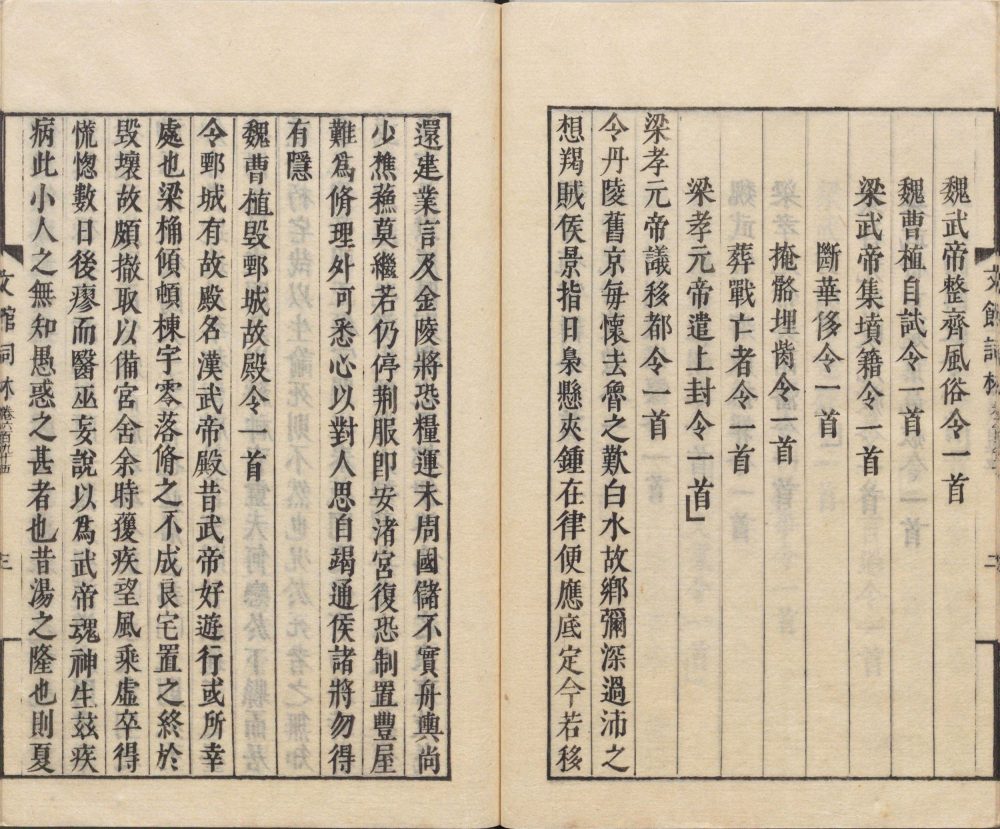 魏武帝整齊風俗令一首
魏曹植自試令一首
梁武帝集墳籍令一首
斷華侈令一首
掩骼埋胔令一首
葬戰亡者令一首
梁孝元帝遣上封令一首
梁孝元帝議移都令一首
令丹陵舊京每懷去魯之歎白水故鄉彌深過沛之
想羯賊侯景指日梟懸夾鍾在律便應底定今若移
還建業言及金陵將恐糧運未周國儲不實舟輿尚
少樵蘇莫繼若仍停荆服卽安渚宮復恐制置豐屋
難爲脩理外可悉心以對人思自竭通侯諸將勿得
有隱
魏曹植毀鄄城故殿令一首
令鄄城有故殿名漢武帝殿昔武帝好遊行或所幸
處也梁桷傾頓棟宇零落脩之不成良宅置之終於
毀壞故頗撤取以備宮舍余時獲疾望風乘虛卒得
慌惚數日後瘳而醫巫妄說以爲武帝魂神生茲疾
病此小人之無知愚惑之甚者也昔湯之隆也則夏
文館詞林 三